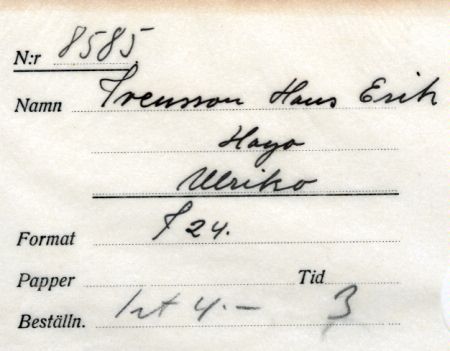 N:r 8585
Namn Svensson Hans Erik
Hago
Ulrika
Format 24.
Papper Tid
Beställn. 1st 4:- 3